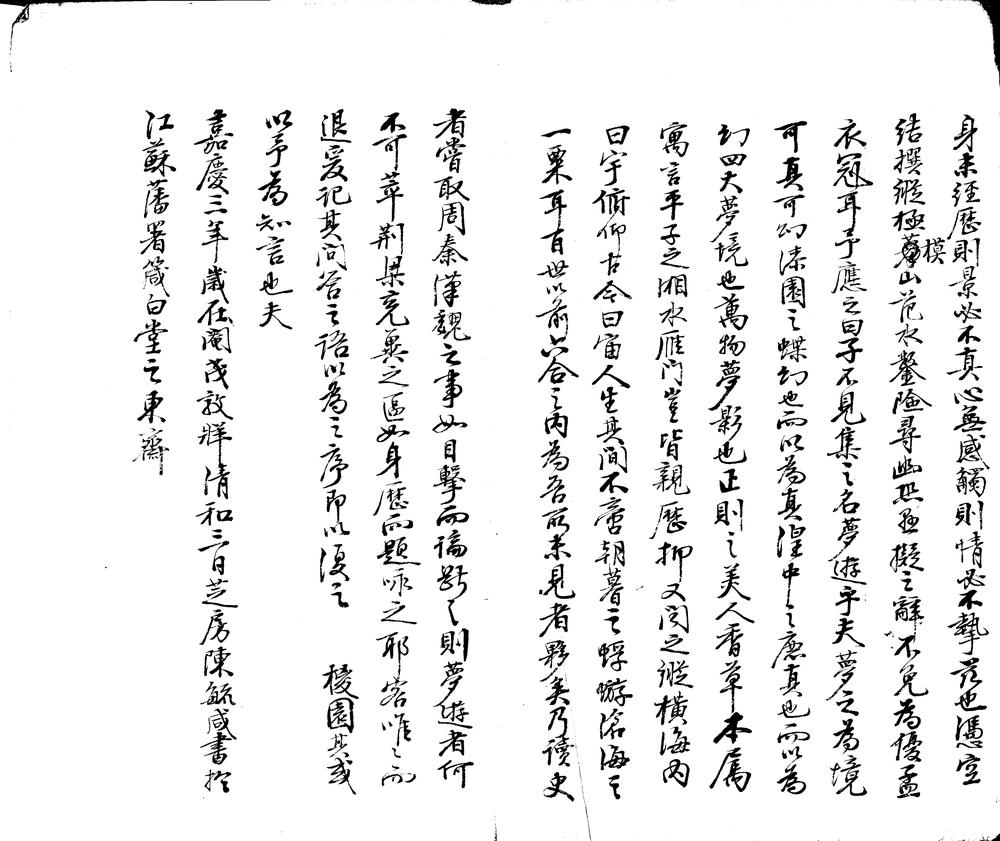 身未經歷則景必不真心無感觸則情必不摯茲也憑空
結撰縱極模山范水鑿險尋幽恐懸擬之辭不免為優孟
衣冠耳予應之曰子不見集之名夢遊乎夫夢之為境
可真可幻漆園之蝶幻也而以為真隍中之鹿真也而以為
幻四大夢境也萬物夢影也正則之美人香草本屬
寓言平子之湘水雁門豈皆親歷抑又聞之縱橫海內
曰宇俯仰古今曰宙人生其間不啻朝暮之蜉蝣滄海之
一粟耳百世以前六合之內為吾所未見者夥矣乃讀史
者嘗取周秦漢魏之事如目擊而論斷之則夢遊者何
不可萃荊梁兗冀之區如身歷而題咏之耶客唯之而
退爰記其問答之語以為之序即以復之 稜園其或
以予為知言也夫
嘉慶三年歲在閹茂敦牂清和三日芝房陳毓咸書於
江蘇藩署箴白堂之東齋